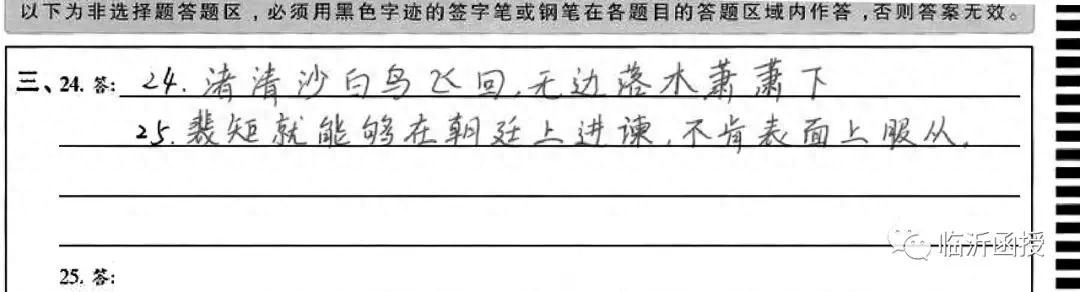 以下为非选择题答题区，必须用黑色字迹的签字笔或钢笔在各题目的答题区域内作答，否则答案无效。
三、24. 答: 24. 渚清沙白鸟飞回,无边落水萧萧下
25. 裴矩就能够在朝廷上进谏,不肯表面上服从,
临沂函授
25. 答: